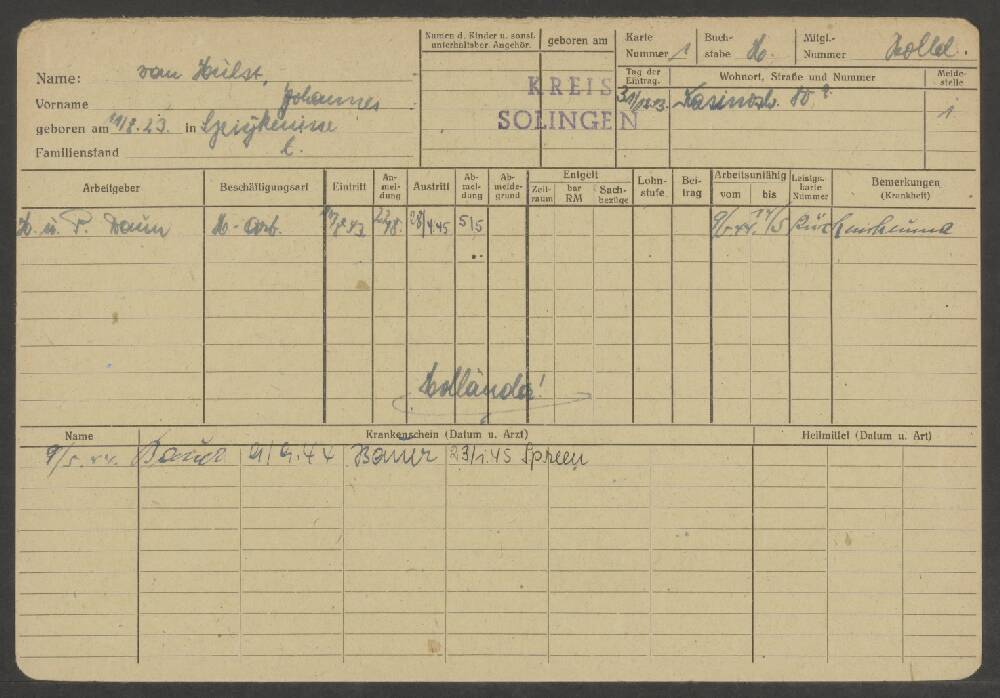 Name: van Hülst,
Vorname Johannes
geboren am 11/8.23. in
Familienstand l.
Namen d. Kinder u. sonst. unterhaltsber. Angehör.
geboren am
KREIS
SOLINGEN
Karte Nummer 1
Buch- stabe H.
Mitgl.- Nummer Holld.
Tag der Eintrag.
Wohnort, Straße und Nummer
Melde- stelle
Kasinostr. 1
Arbeitgeber Beschäftigungsart Eintritt An- mel- dung Austritt Ab- mel- dung Ab- melde- grund Entgelt Zeit- raum bar RM Sach- bezüge Lohn- stufe Bei- trag Arbeitsunfähig vom bis Leistgs.- karte Nummer Bemerkungen (Krankheit)
H. u. P. Daum H-Arb. 28/4.45 5/5 9/5.44. 14/5
Holländer!
Name Krankenschein (Datum u. Arzt) Heilmittel (Datum u. Art)
9/5.44. Bauer 9/9.44 Bauer 23/1.45 Spreen